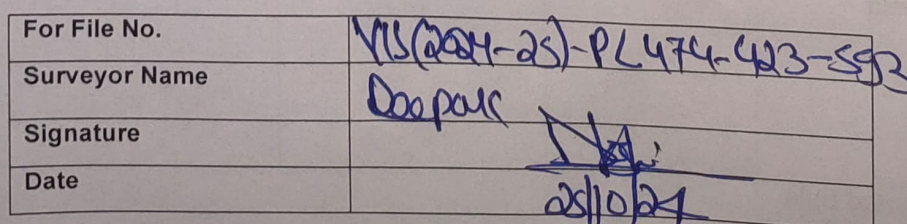 For File No. VIS(2024-25)-PL474-423-593
Surveyor Name Deepak
Signature
Date 25/10/24